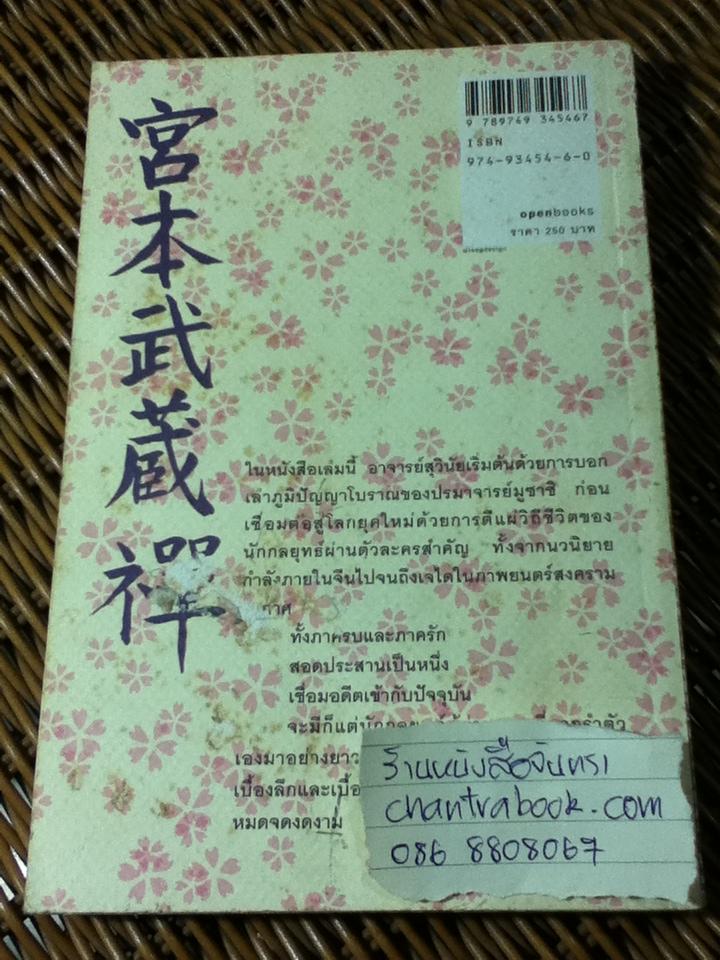 宮本武蔵禪
9 789749 345467
ISBN
974-93454-6-0
openbooks
ราคา 250 บาท
ในหนังสือเล่มนี้ อาจารย์สุวินัยเริ่มต้นด้วยการบอก
เล่าภูมิปัญญาโบราณของปรมาจารย์มูซาชิ ก่อน
เชื่อมต่อสู่โลกยุคใหม่ด้วยการตีแผ่วิถีชีวิตของ
นักกลยุทธ์ผ่านตัวละครสำคัญ ทั้งจากนวนิยาย
กำลังภายในจีนไปจนถึงเจไดในภาพยนตร์สงคราม
กาศ
ทั้งภาครบและภาครัก
สอดประสานเป็นหนึ่ง
เชื่อมอดีตเข้ากับปัจจุบัน
จะมีก็แต่
เองมาอย่างยาว
เบื้องลึกและเบื้อ
หมดจดงดงาม
ร้านหนังสือจันทรา
chantrabook.com
086 8808067